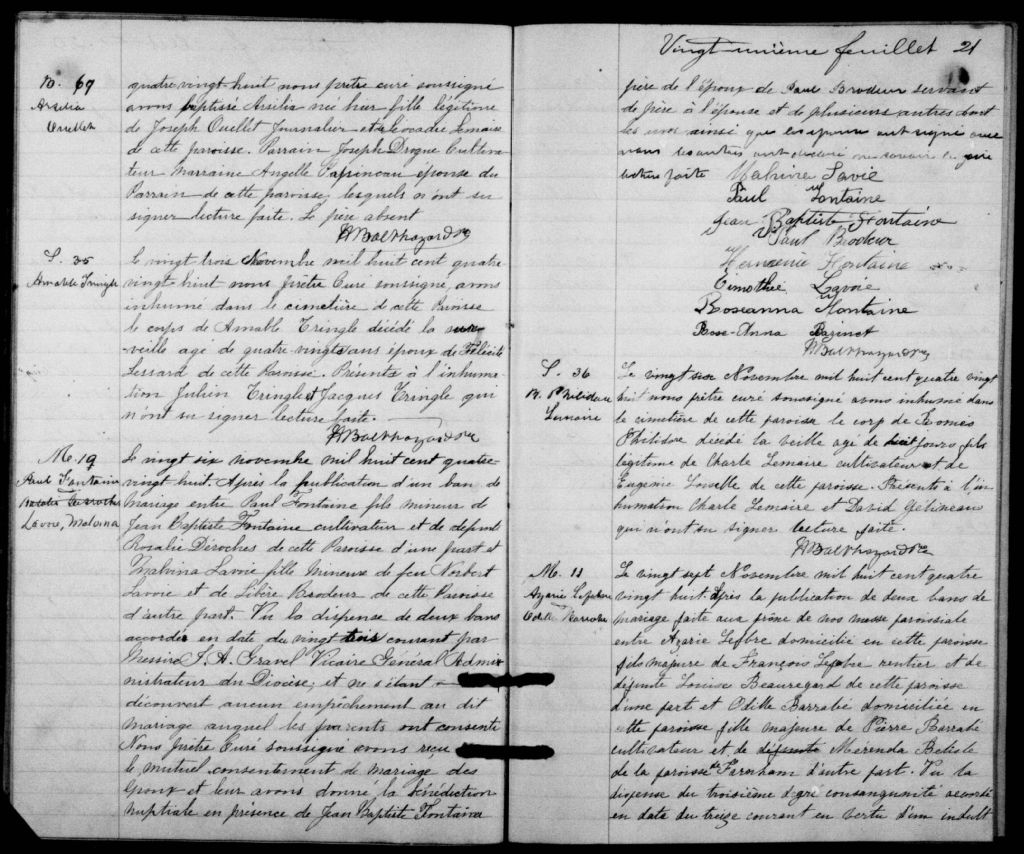 B. 69
Arsilia
Ouellet
quatre vingt huit nous pretre curé soussigné
avons baptisé Arsilia née hier fille légitime
de Joseph Ouellet Journalier et de Léocadie Lemaire
de cette paroisse. Parrain Joseph Drogue Cultiva
teur Marraine Angelle Papineau épouse du
Parrain de cette paroisse, lesquels n'ont su
signer lecture faite. Le père absent
JABalthazard Ptre
S. 35
Amable Tringle
Le vingt trois Novembre mil huit cent quatre
vingt huit nous prêtre Curé soussigné, avons
inhumé dans le cimetière de cette Paroisse
le corps de Amable Tringle décédé la
veille agé de quatre-vingts ans époux de Félicité
Lessard de cette Paroisse. Présents à l'inhuma-
tion Julien Tringle et Jacques Tringle qui
n'ont su signer lecture faite.
JABalthazard Ptre
M. 19
Paul Fontaine
Lavoie, Malvina
Le vingt six novembre mil huit cent quatre
vingt huit. Après la publication d'un ban de
Mariage entre Paul Fontaine fils mineur de
Jean Baptiste Fontaine cultivateur et de defunte
Rosalie Déroches de cette Paroisse d'une part et
Malvina Lavoie fille Mineure de feu Norbert
Lavoie et de Libère Brodeur de cette Paroisse
d'autre part. Vu la dispense de deux bans
accordée en date du vingt trois courant par
Messire J. A. Gravel Vicaire Général Admi
nistrateur du Diocèse, et ne s'étant
découvert aucun empêchement au dit
Mariage auquel les parents ont consenti
Nous prêtre Curé soussigné avons reçu
le mutuel consentement de mariage des
Epoux et leur avons donné la bénédiction
nuptiale en présence de Jean Baptiste Fontaine
Vingt-unième feuillet 21
père de l'époux de Paul Brodeur servant
de père à l'épouse et de plusieurs autres dont
les uns ainsi que les époux ont signé avec
nous les autres ont déclaré ne savoir le faire
lecture faite Malvire Lavoie
Paul Fontaine
Jean Baptiste Fontaine
Paul Brodeur
Fontaine
Timothée Lavoie
Roseanna Fontaine
Rose-Anna Bazinet
JABalthazard Ptre
S. 36
R. Philidore
Lemaire
Le vingt six Novembre mil huit cent quatre vingt
huit nous prêtre curé soussigné avons inhumé dans
le cimetière de cette paroisse le corp de Romeo
Philidore décédé la veille agé de huit jours fils
légitime de Charle Lemaire cultivateur et de
Eugenie Loiselle de cette paroisse. Présents à l'in
humation Charle Lemaire et David Gélineau
qui n'ont su signer lecture faite.
JABalthazard Ptre
M. 11
Azarie Lefebvre
Odille Barrabé
Le vingt sept Novembre mil huit cent quatre
vingt huit. Après la publication de deux bans de
mariage faite aux prône de nos messe paroissiale
entre Azarie Lefbre domicilié en cette paroisse
fils majure de François Lefbre rentier et de
défunte Louise Beauregard de cette paroisse
d'une part et Odille Barrabé domiciliée en
cette paroisse fille majure de Pierre Barrabé
cultivateur et de défunte Merenda Batiste
de la paroisse de Farnham d'autre part. Vu la
dispense du troisième dgré consanguinité accordé
en date du treize courant en vertu d'un indult